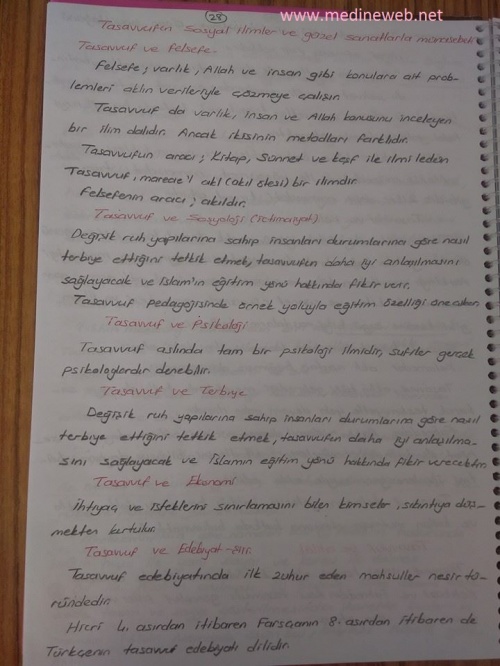 www.medineweb.net
28
Tasavvufun Sosyal ilimler ve güzel sanatlarla münasebeti
Tasavvuf ve felsefe.
Felsefe; varlık, Allah ve insan gibi konulara ait prob-
lemleri aklın verileriyle çözmeye çalışır.
Tasavvuf da varlık, insan ve Allah konusunu inceleyen
bir ilim dalıdır. Ancak ikisinin metodları farklıdır.
Tasavvufun aracı; Kitap, Sünnet ve keşf ile ilmi ledün
Tasavvuf, maverae'l akl (akıl ötesi) bir ilimdir.
Felsefenin aracı; akıldır.
Tasavvuf ve Sosyoloji (ictimaiyat)
Değişik ruh yapılarına sahip insanları durumlarına göre nasıl
terbiye ettiğini tetkik etmek, tasavvufun daha iyi anlaşılmasını
sağlayacak ve İslam'ın eğitim yönü hakkında fikir verir.
Tasavvuf pedagojisinde örnek yoluyla eğitim özelliği öne çıkar.
Tasavvuf ve Psikoloji
Tasavvuf aslında tam bir psikoloji ilmidir, sufiler gerçek
psikologlardır denebilir.
Tasavvuf ve Terbiye
Değişik ruh yapılarına sahip insanları durumlarına göre nasıl
terbiye ettiğini tetkik etmek, tasavvufun daha iyi anlaşılma-
sını sağlayacak ve İslamın eğitim yönü hakkında fikir verecektir.
Tasavvuf ve Ekonomi
İhtiyaç ve isteklerini sınırlamasını bilen kimseler, sıkıntıya düş-
mekten kurtulur.
Tasavvuf ve Edebiyat-Şiir.
Tasavvuf edebiyatında ilk zuhur eden mahsuller nesir tü-
ründedir.
Hicri 4. asırdan itibaren Farsçanın 8. asırdan itibaren de
Türkçenin tasavvuf edebiyatı dilidir.